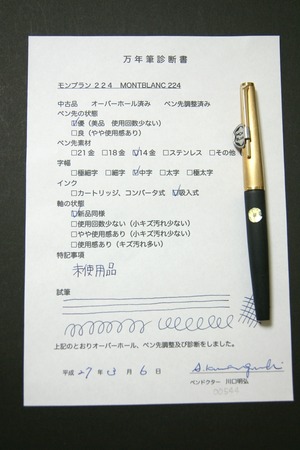 万年筆診断書
モンブラン２２４　MONTBLANC 224
中古品　オーバーホール済み　ペン先調整済み
ペン先の状態
☑優（美品　使用回数少ない）
□良（やや使用感あり）
ペン先素材
□21金　□18金　☑14金　□ステンレス　□その他
字幅
□極細字　□細字　☑中字　□太字　□極太字
インク
□カートリッジ、コンバータ式　☑吸入式
軸の状態
☑新品同様
□使用回数少ない（小キズ汚れ少ない）
□やや使用感あり（小キズ汚れ少ない）
□使用感あり（キズ汚れ多い）
特記事項
未使用品
試筆
上記のとおりオーバーホール、ペン先調整及び診断をしました。
平成 27年 月 6日
ペンドクター　川口明弘